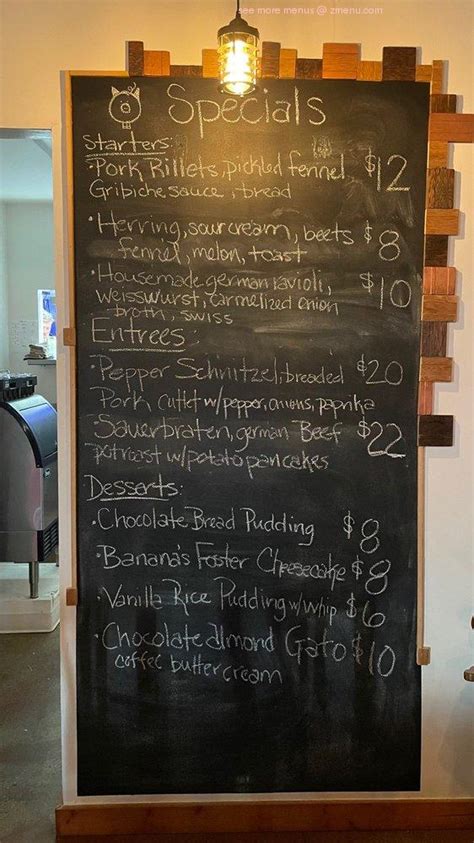 see more menus @ zmenu.com
Specials
Starters:
•Pork Rillets, pickled fennel, $12
Gribiche sauce, bread
•Herring, sour cream, beets $8
fennel, melon, toast
•Housemade german ravioli, $10
weisswurst, carmelized onion
broth, swiss
Entrees:
•Pepper Schnitzel, breaded $20
Pork Cutlet w/pepper, onions, paprika
•Sauerbraten, german Beef $22
potroast w/potato pancakes
Desserts:
•Chocolate Bread Pudding $8
•Banana's Foster Cheesecake $8
•Vanilla Rice Pudding w/whip $6
•Chocolate almond Gato $10
coffee buttercream